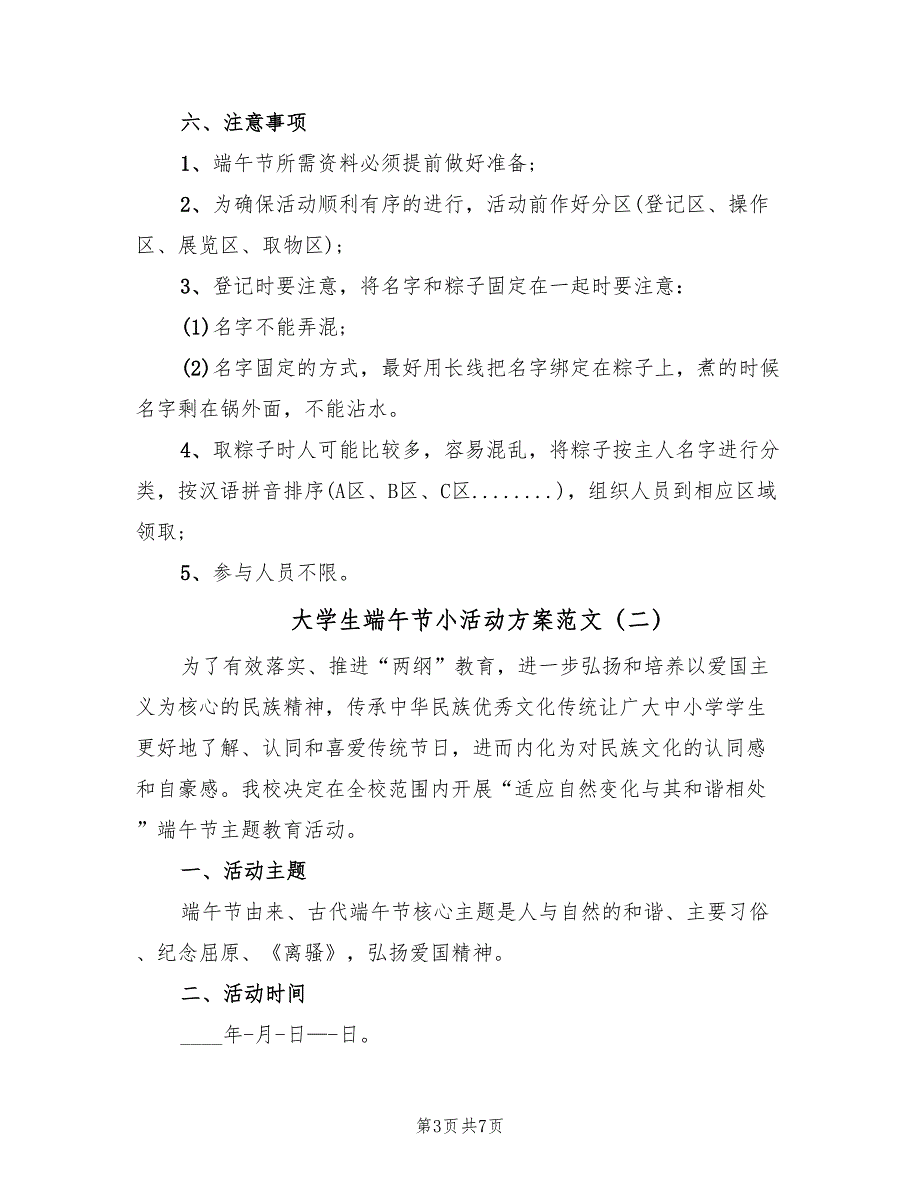 六、注意事项
1、端午节所需资料必须提前做好准备;
2、为确保活动顺利有序的进行，活动前作好分区(登记区、操作
区、展览区、取物区);
3、登记时要注意，将名字和粽子固定在一起时要注意：
(1)名字不能弄混;
(2)名字固定的方式，最好用长线把名字绑定在粽子上，煮的时候
名字剩在锅外面，不能沾水。
4、取粽子时人可能比较多，容易混乱，将粽子按主人名字进行分
类，按汉语拼音排序(A区、B区、C区........)，组织人员到相应区域
领取;
5、参与人员不限。
大学生端午节小活动方案范文（二）
为了有效落实、推进“两纲”教育，进一步弘扬和培养以爱国主
义为核心的民族精神，传承中华民族优秀文化传统让广大中小学学生
更好地了解、认同和喜爱传统节日，进而内化为对民族文化的认同感
和自豪感。我校决定在全校范围内开展“适应自然变化与其和谐相处
”端午节主题教育活动。
一、活动主题
端午节由来、古代端午节核心主题是人与自然的和谐、主要习俗
、纪念屈原、《离骚》，弘扬爱国精神。
二、活动时间
____年-月-日—-日。
第3页共7页